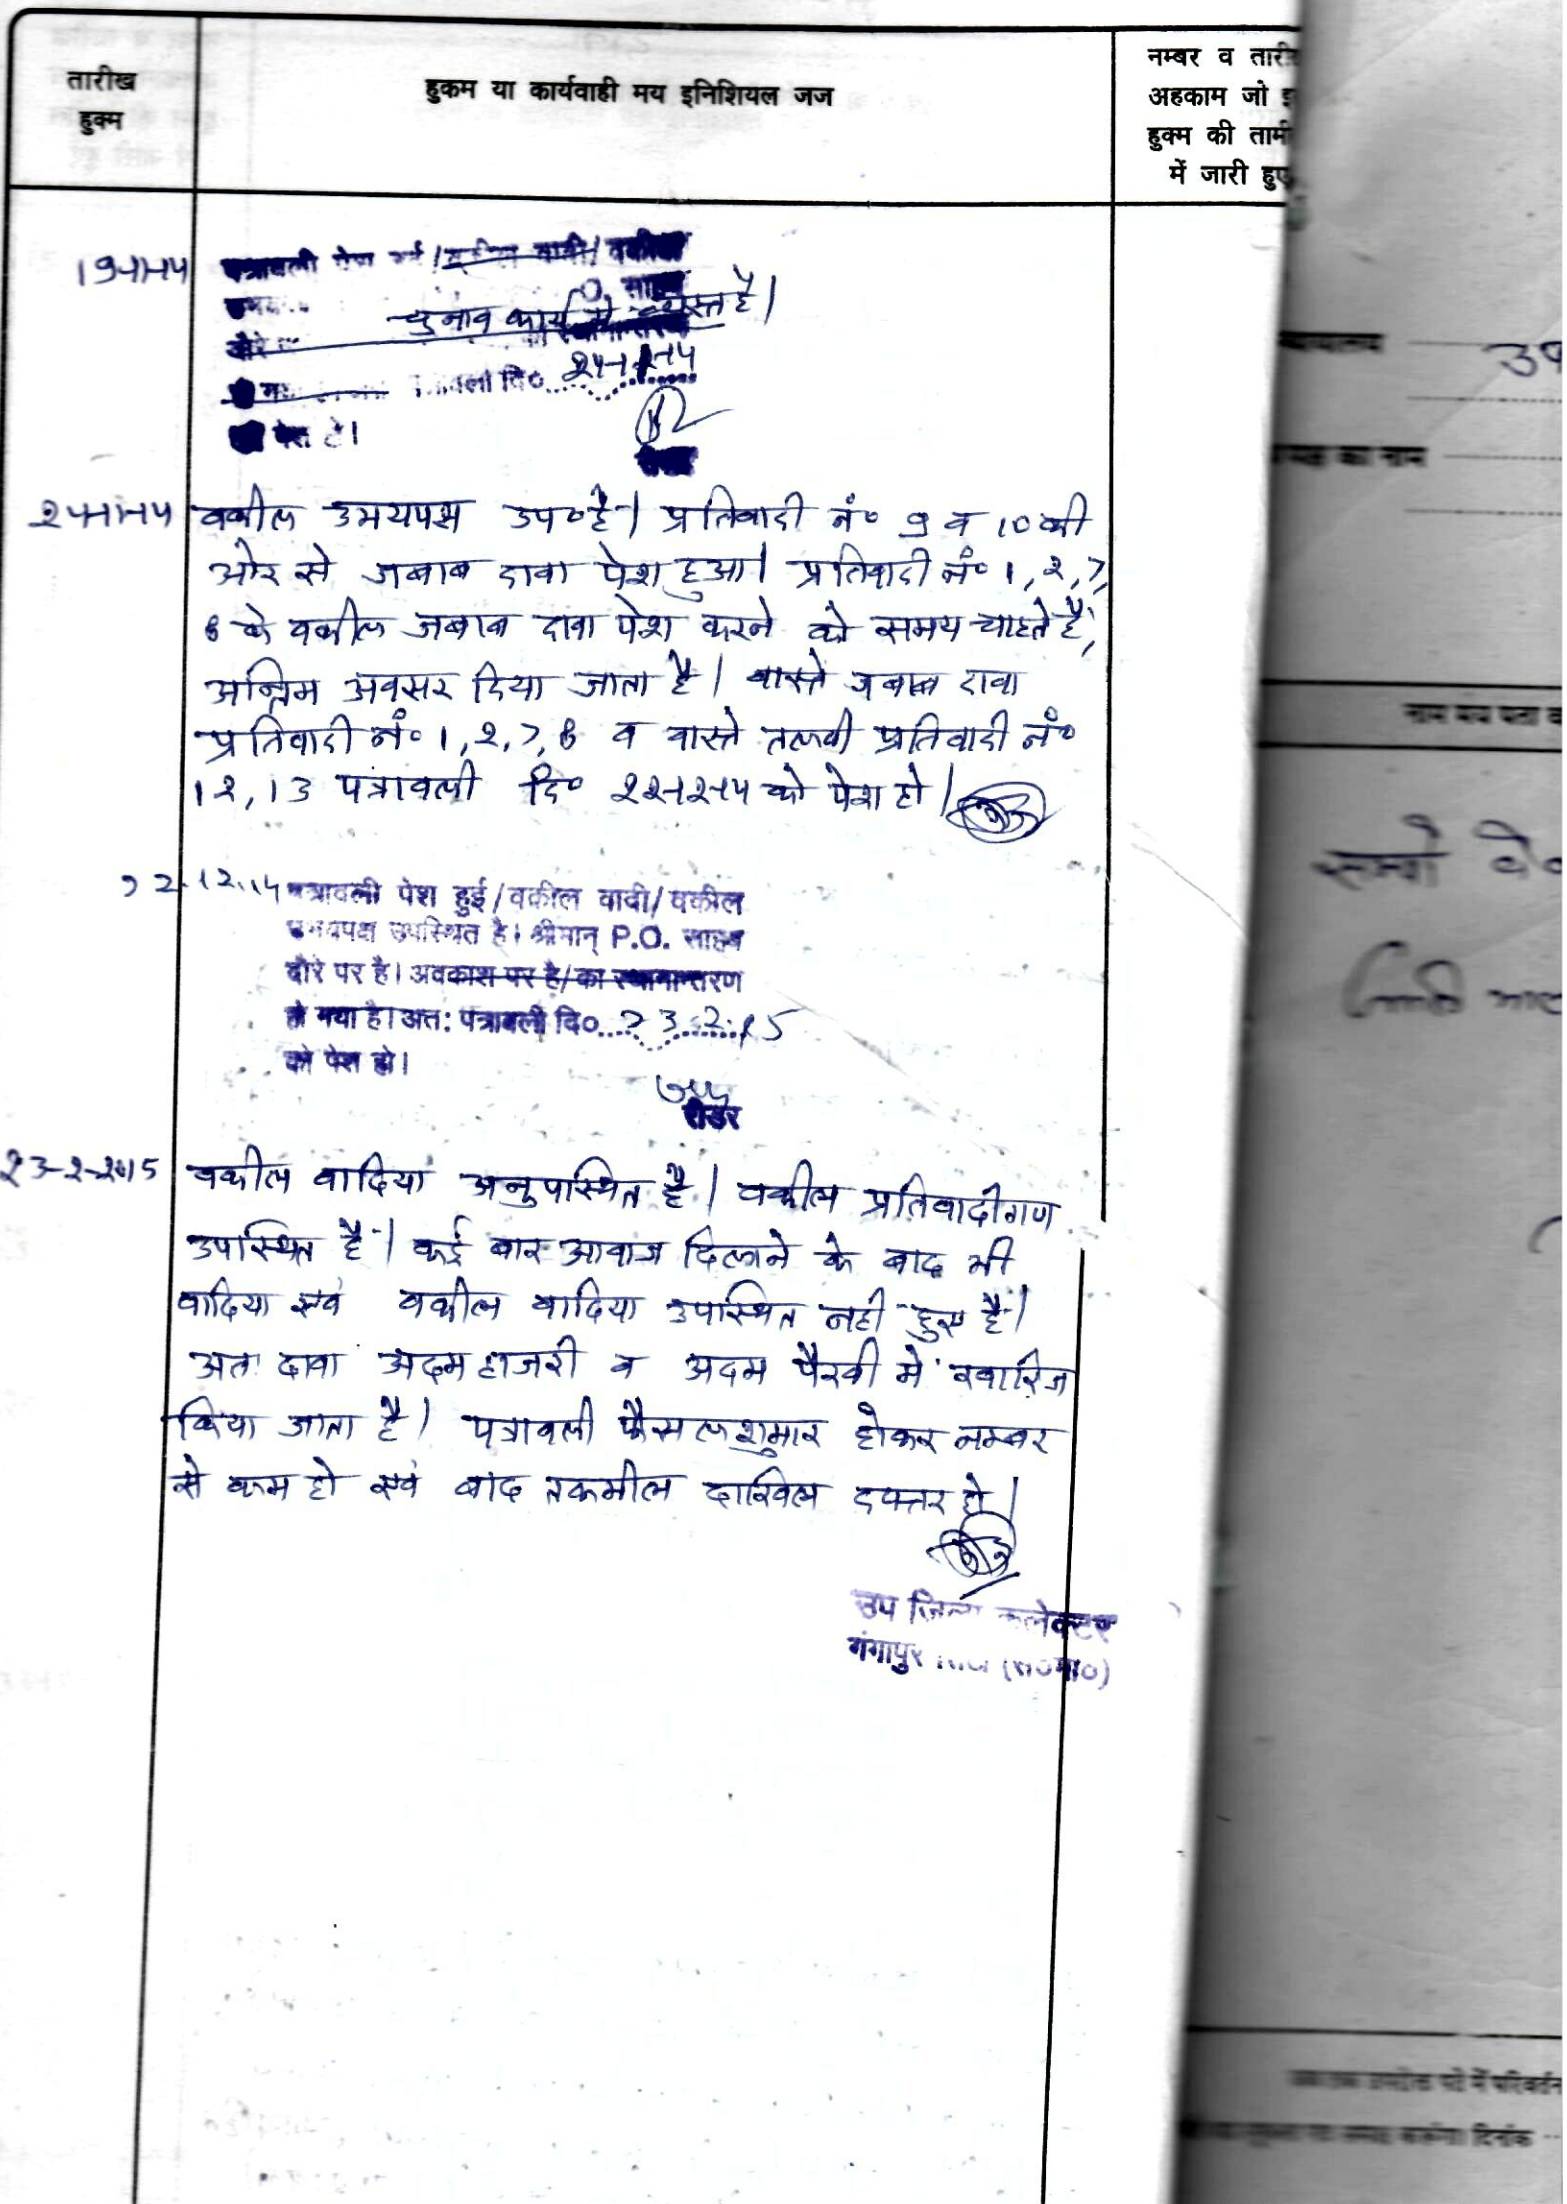 तारीख
हुक्म
हुकम या कार्यवाही मय इनिशियल जज
नम्बर व तारी
अहकाम जो इ
हुक्म की तामी
में जारी हुए
19-11-14
पत्रावली पेश हुई/वकील वादी/वकील
साहब
चुनाव कार्य में व्यस्त है।
दि० 24-11-14
पेश हो।
24-11-14 वकील उभयपक्ष उप० है। प्रतिवादी नं० 9 व 10 की
ओर से जबाब दावा पेश हुआ। प्रतिवादी नं० 1, 2, 7,
8 के वकील जबाब दावा पेश करने को समय चाहते हैं,
अन्तिम अवसर दिया जाता है। वास्ते जबाब दावा
प्रतिवादी नं० 1, 2, 7, 8 व वास्ते तलवी प्रतिवादी नं०
12, 13 पत्रावली दि० 22-12-14 को पेश हो।
22.12.14 पत्रावली पेश हुई/वकील वादी/वकील
उभयपक्ष उपस्थित है। श्रीमान् P.O. साहब
दौरे पर है। अवकाश पर है/का स्थानान्तरण
हो गया है। अत: पत्रावली दि०...23.2.15
को पेश हो।
रीडर
23-2-2015 वकील वादिया अनुपस्थित है। वकील प्रतिवादीगण
उपस्थित है। कई बार आवाज दिलाने के बाद भी
वादिया एवं वकील वादिया उपस्थित नहीं हुए है।
अतः दावा अदम हाजरी व अदम पैरवी में खारिज
किया जाता है। पत्रावली फैसल शुमार होकर नम्बर
से कम हो एवं बाद तकमील दाखिल दफ्तर हो।
उप जिला कलेक्टर
गंगापुर सिटी (स०मा०)
न्यायालय
का नाम
नाम मय पता
परिवर्तन
दिनांक